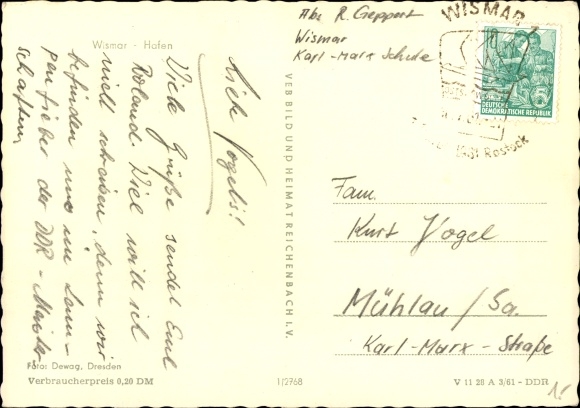 Wismar - Hafen
Liebe Vogel's!
Viele Grüße sendet Euch
Roland. Viel will ich
nicht schreiben, denn wir
befinden uns im Lam-
penfieber der DDR - Meister-
schaften.
Foto: Dewag, Dresden
Verbraucherpreis 0,20 DM
VEB BILD UND HEIMAT REICHENBACH I. V.
1/2768
Abs. R. Geppert
Wismar
Karl-Marx Schule
WISMAR
Rostock
10
5
DEUTSCHE
DEMOKRATISCHE REPUBLIK
Fam.
Kurt Vogel
Mühlau / Sa.
Karl-Marx-Straße
V 11 28 A 3/61 - DDR
1.-